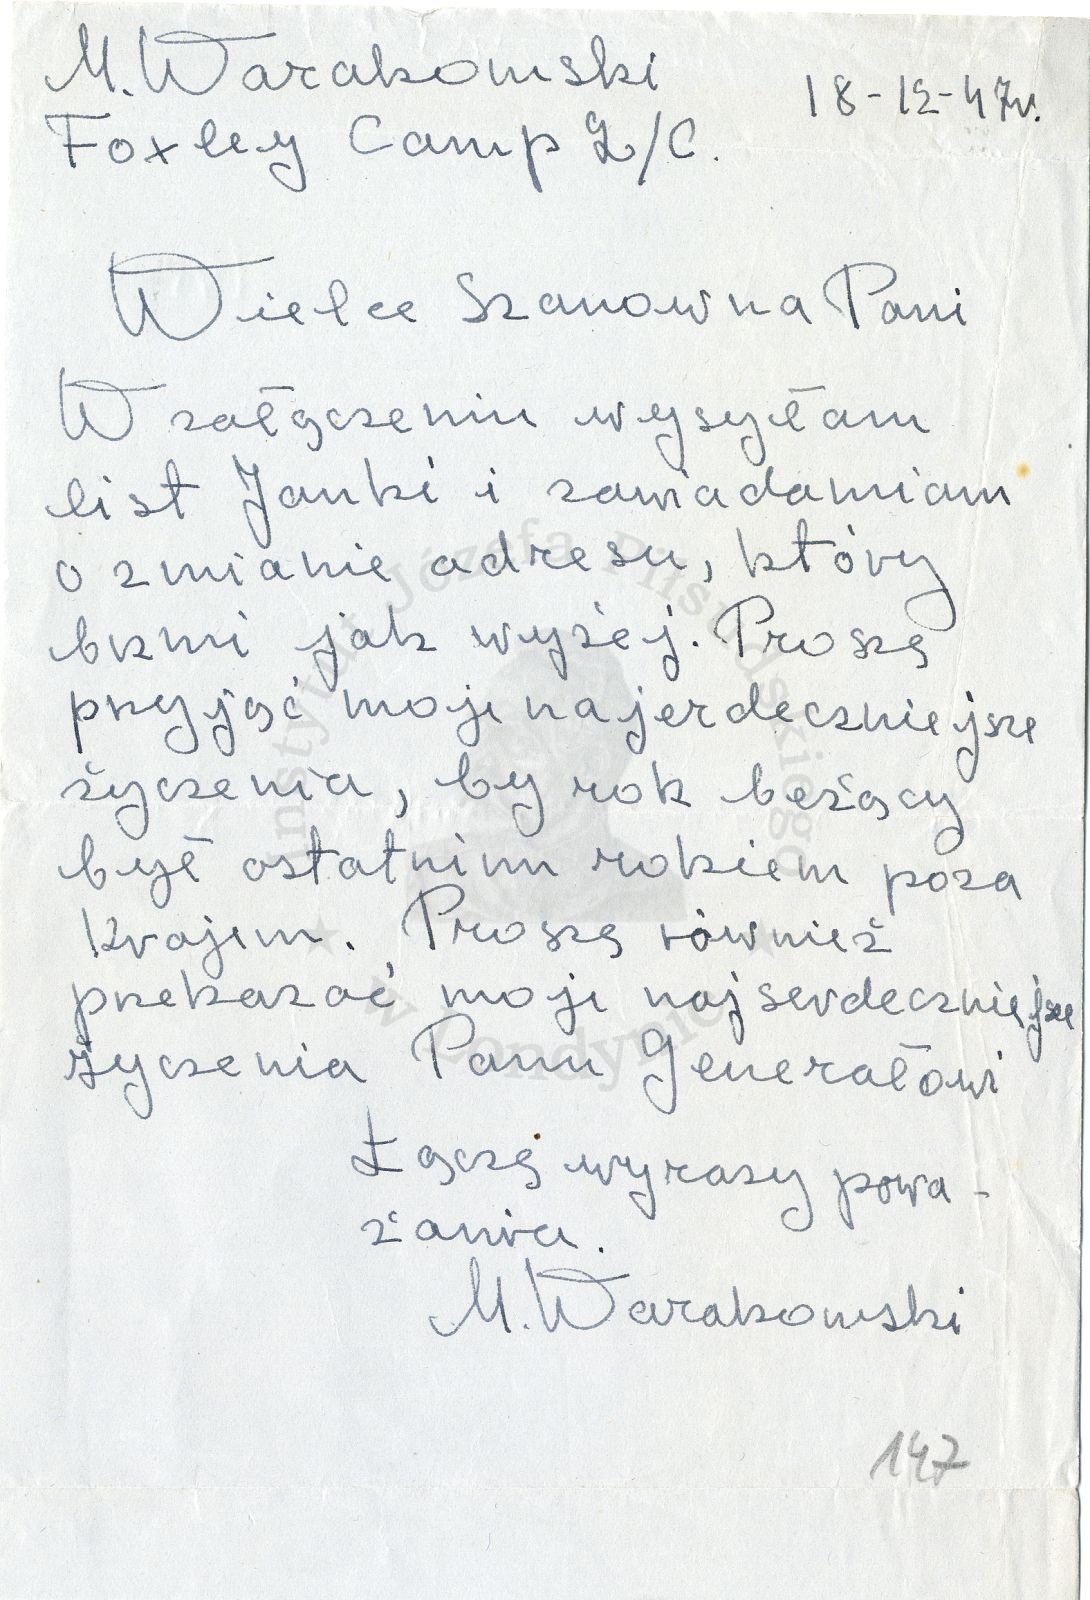 M. Warakomski
18-12-47r.
Foxley Camp 2/C.
Wielce Szanowna Pani
W załączeniu wysyłam
list Janki i zawiadamiam
o zmianie adresu, który
brzmi jak wyżej. Proszę
przyjąć moje najerdeczniejsze
życzenia, by rok bieżący
był ostatnim rokiem poza
Krajem. Proszę również
przekazać moje najserdeczniejsze
życzenia Panu Generałowi
Łączę wyrazy powa-
żania.
M. Warakomski
147
Instytut Józefa Piłsudskiego
w Londynie